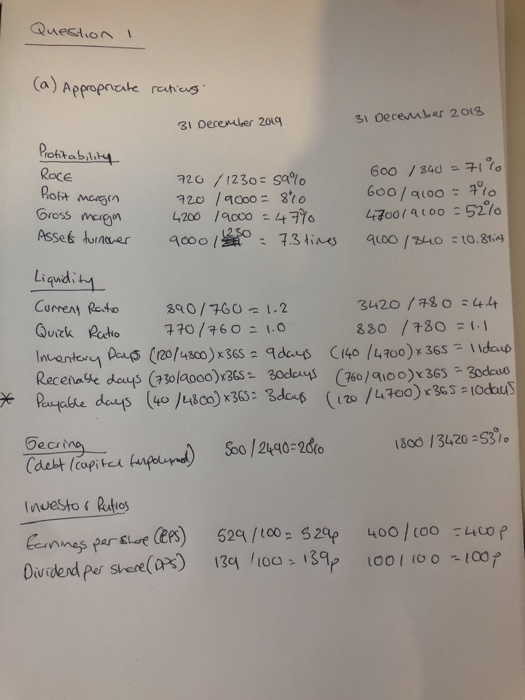 Question 1
(a) Appropriate ratios.
31 December 2019 31 December 2018
Profitability
ROCE 720 / 1230 = 59% 600 / 840 = 71%
Profit margin 720 / 9000 = 8% 600 / 9100 = 7%
Gross margin 4200 / 9000 = 47% 4700 / 9100 = 52%
Assets turnover 9000 / 1230 = 7.3 times 9100 / 840 = 10.8 times
Liquidity
Current Ratio 890 / 760 = 1.2 3420 / 780 = 4.4
Quick Ratio 770 / 760 = 1.0 880 / 780 = 1.1
Inventory Days (120/4800) x 365 = 9 days (140 / 4700) x 365 = 11 days
Receivable days (730/9000) x 365 = 30 days (760/9100) x 365 = 30 days
* Payable days (40 / 4800) x 365 = 3 days (120 / 4700) x 365 = 10 days
Gearing 500 / 2490 = 20% 1800 / 3420 = 53%
(debt / capital employed)
Investor Ratios
Earnings per share (EPS) 529 / 100 = 529p 400 / 100 = 400p
Dividend per share (DPS) 139 / 100 = 139p 100 / 100 = 100p